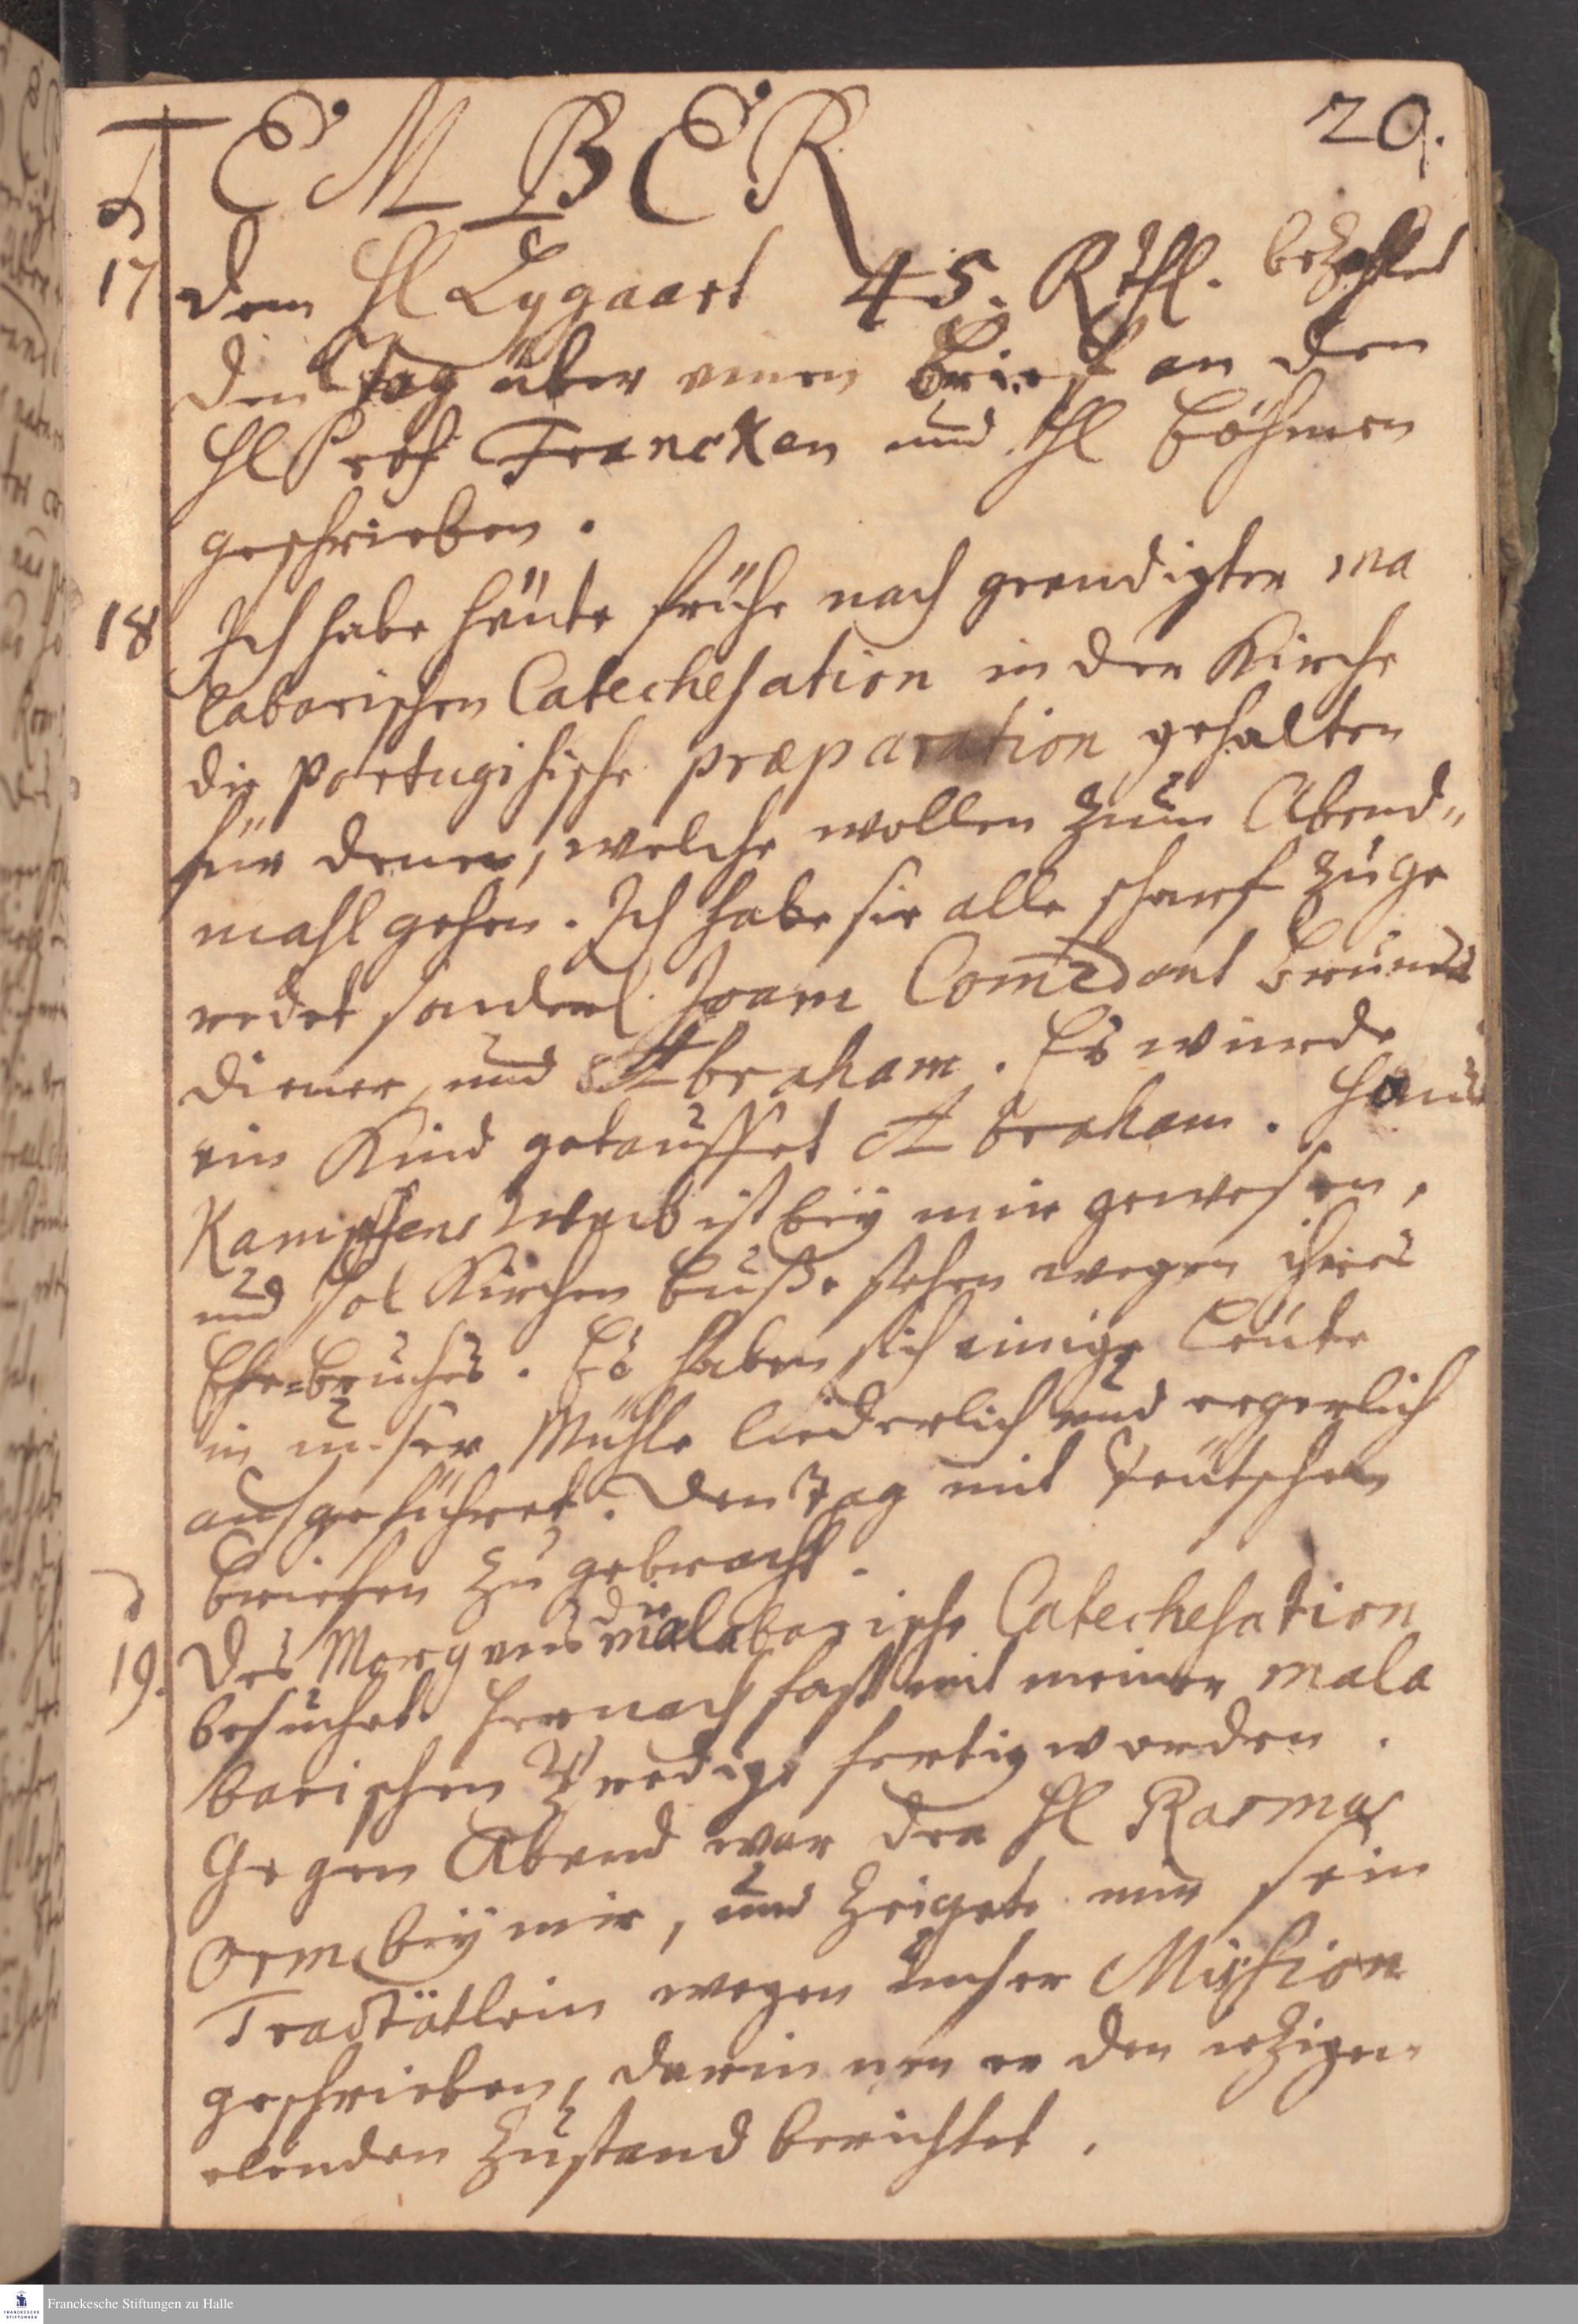 EMBER
29.
17 dem H Lygaart 45. Rthl. bezahlet
den tag über einen Brief an den
H Prof Francken und H Böhmen
geschrieben.
18 Ich habe heüte frühe nach geendigter ma
labarischen Catechesation in der Kirche
die portugisische præparation gehalten
für denen, welche wollen zum Abend„
mahl gehen. Ich habe sie alle scharf zuge
redet sonderl. Joam Comēdant
diener, und Abraham. Es wurde
ein Kind getauffet Abraham.
Weib ist beÿ mir gewesen,
und sol Kirchen busse stehen wegen ihres
Ehe=bruches. Es haben sich einige leüte
in unser Mühle liederlich und ergerlich
aufgeführet. Den tag mit teütschen
briefen zu gebracht.
19. Des Morgens die malabarische Catechesation
besuchet hernach fast mit meiner mala
barischen Predigt fertig worden.
Gegen Abend war der H Rasmus
Orm beÿ mir, und zeigete mir sein
Tractätlein wegen unser Mission
geschrieben, darinnen er den ietzigen
elenden Zustand berichtet.
Franckesche Stiftungen zu Halle